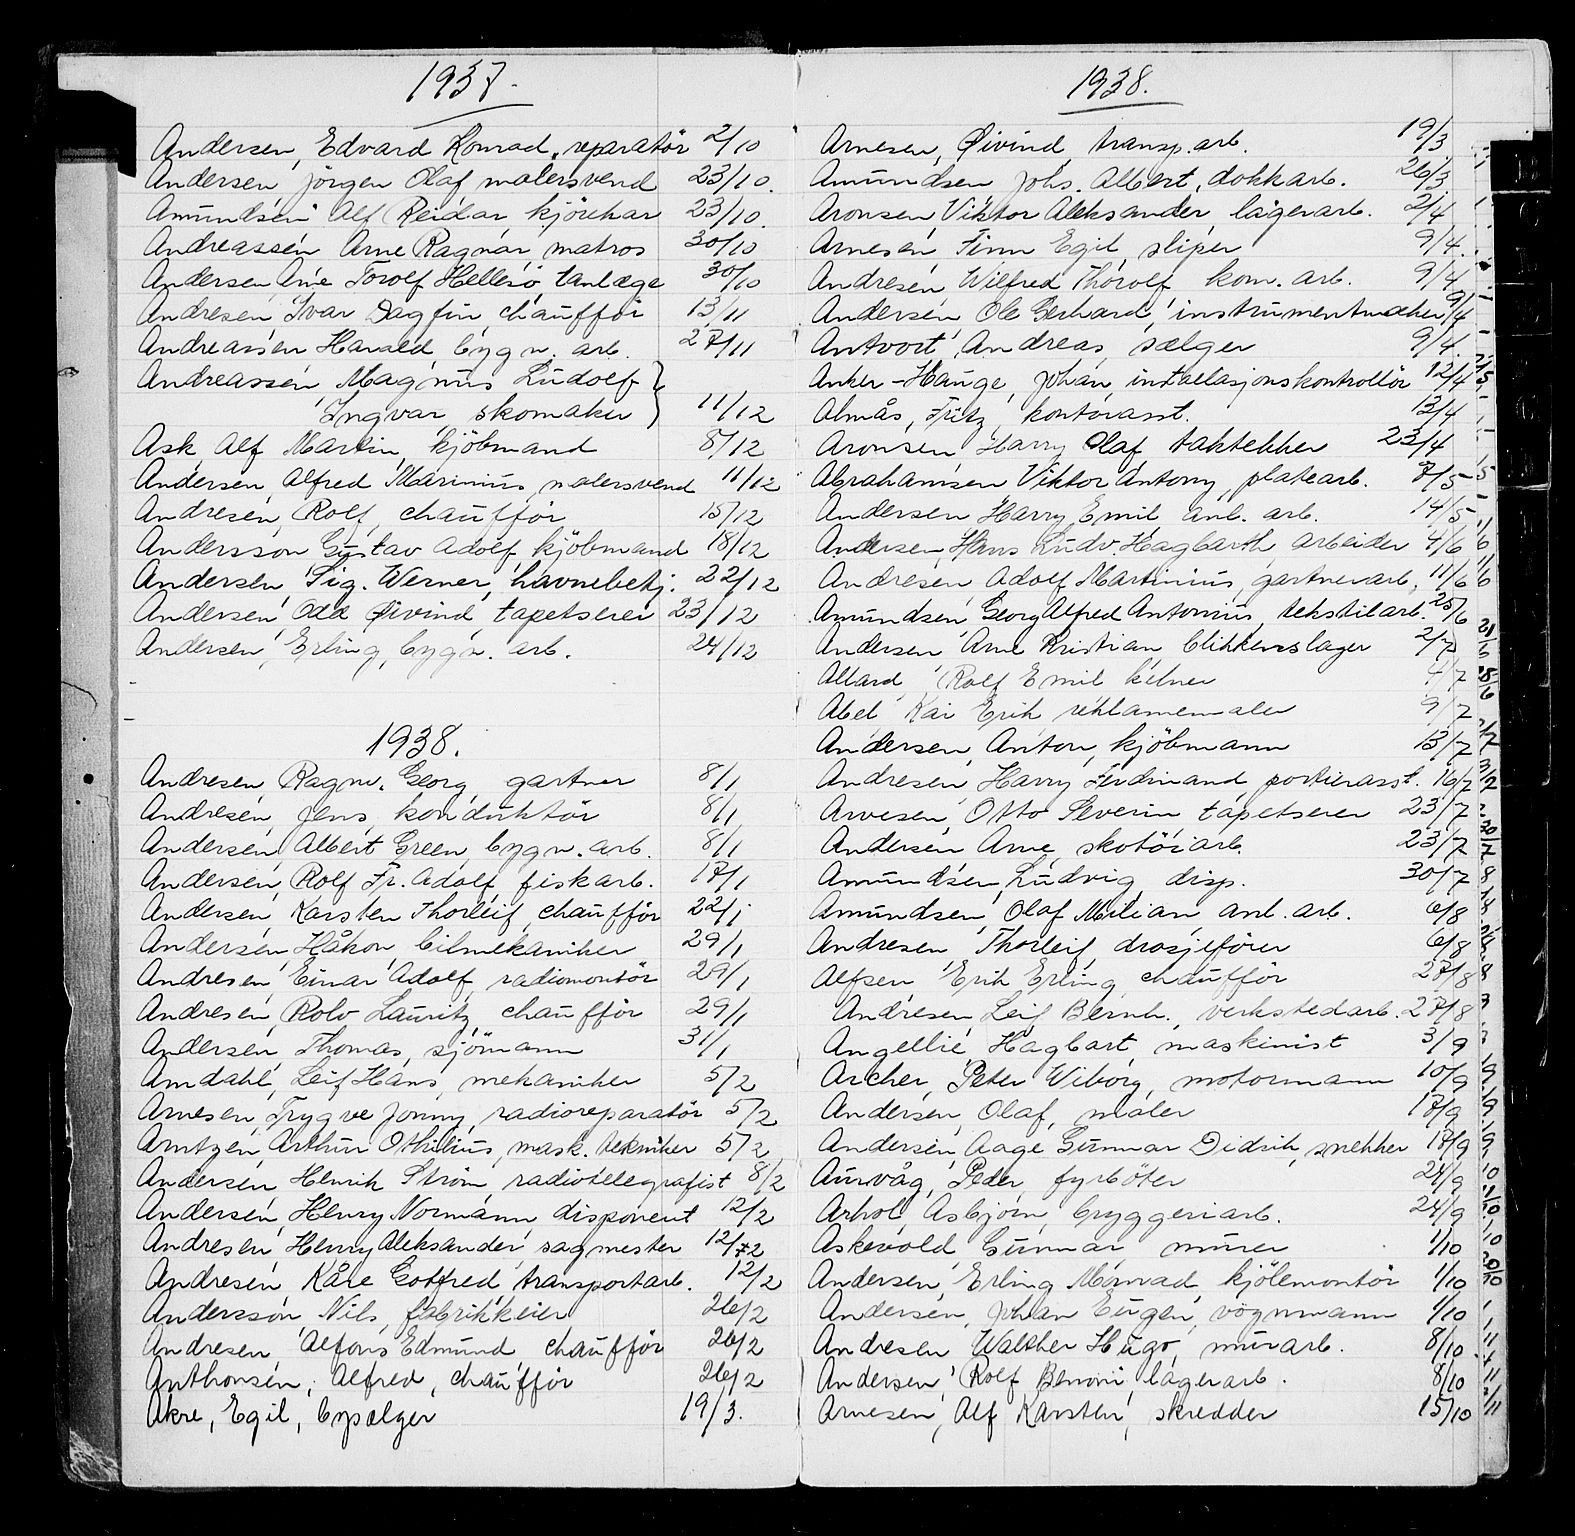 1937.
Andersen, Edvard Konrad, reparatör 2/10
Andersen, Jörgen Olaf malersvend 23/10.
Amundsen Alf Reidar kjörekar 23/10.
Andreassen Arne Ragnar matros 30/10
Andersen Arne Torolf Hellesö tanlæge 30/10
Andresen Ivar Dagfin chaufför 13/11
Andreassen Harald, bygn. arb. 27/11
Andreassen Magnus Ludolf }
Ingvar, skomaker } 11/12
Ask, Alf Martin, kjöbmand 8/12
Andersen, Alfred Marinius, malersvend 11/12
Andresen, Rolf, chaufför 15/12
Andersson Gustav Adolf, kjöbmand 18/12
Andersen, Sig. Werner, havnebetj. 22/12
Andersen, Odd Øivind, tapetserer 23/12
Andersen, Erling, bygn. arb. 24/12
1938.
Andresen, Ragnv. Georg, gartner 8/1
Andresen, Jens, konduktör 8/1
Andersen, Albert Green, bygn. arb. 8/1
Andersen, Rolf Fr. Adolf, fiskarb. 17/1
Andersen, Karsten Thorleif, chaufför 22/1
Andersen, Håkon, bilmekaniker 29/1
Andresen, Einar Adolf, radiomontör 29/1
Andresen, Rolv Lauritz, chaufför 29/1
Andersen, Thomas, sjömann 31/1
Amdahl, Leif Hans, mekaniker 5/2
Arnesen, Trygve Jonny, radioreparatör 5/2
Arntzen, Arthur Othilius, mask. tekniker 5/2
Andersen, Henrik Ström, radiotelegrafist 8/2
Andersen, Henry Normann disponent 12/2
Andresen, Henry Aleksander, sagmester 12/2
Andresen, Kåre Gotfred, transportarb. 12/2
Andersson, Nils, fabrikkeier 26/2
Andresen, Alfons Edmund chaufför 26/2
Anthonsen, Alfred, chaufför 26/2
Akre, Egil, bysælger 19/3.
1938.
Arnesen, Øivind, transp. arb. 19/3
Amundsen Johs. Albert, dokkarb. 26/3
Aronsen Viktor Aleksander lagerarb. 2/4
Arnesen Finn Egil, sliper 9/4
Andresen Wilfred Thorolf kom. arb. 9/4
Andersen, Ole Gerhard, instrumentmaker 9/4
Antvort, Andreas, sælger 9/4
Anker-Hauge, Johan, installasjonskontrollör 12/4
Almås, Fritz, kontorasst. 12/4
Aronsen Harry Olaf taktekker 23/4
Abrahamsen Viktor Antony, platearb. 7/5
Andersen Harry Emil, anl. arb. 14/5
Andersen, Hans Ludv. Hagbarth, arbeider 4/6
Andresen, Adolf Martinius, gartnerarb. 11/6
Amundsen Georg Alfred Antonius, tekstilarb. 25/6
Andersen Arne Kristian, blikkenslager 2/7
Allard, Rolf Emil kelner 4/7
Abel Kai Erik reklamemaler 9/7
Andersen, Anton, kjöbmann 13/7
Andresen, Harry Ferdinand portierasst. 16/7
Arvesen, Otto Severin tapetserer 23/7
Andersen Arne, skotöiarb. 23/7
Amundsen, Ludvig, disp. 30/7
Amundsen, Olaf Milian anl. arb. 6/8
Andresen, Thorleif, drosjeförer 6/8
Alfsen Erik Erling, chaufför 27/8
Andresen, Leif Bernh., verkstedarb. 27/8
Angellie, Hagbart, maskinist 3/9
Archer, Peter Wiborg, motormann 10/9
Andersen, Olaf, maler 17/9
Andersen, Aage Gunnar Didrik, snekker 17/9
Aurvåg, Peder, fyrböter 24/9
Arhol, Asbjörn, bryggeriarb. 24/9
Askevold, Gunnar, murer 1/10
Andersen, Erling Monrad, kjölemontör 1/10
Andersen, Johan Eugen, vognmann 1/10
Andresen, Walther Hugo, murarb. 8/10
Andersen, Rolf Benoni, lagerarb. 8/10
Arnesen, Alf Karsten, skredder 15/10